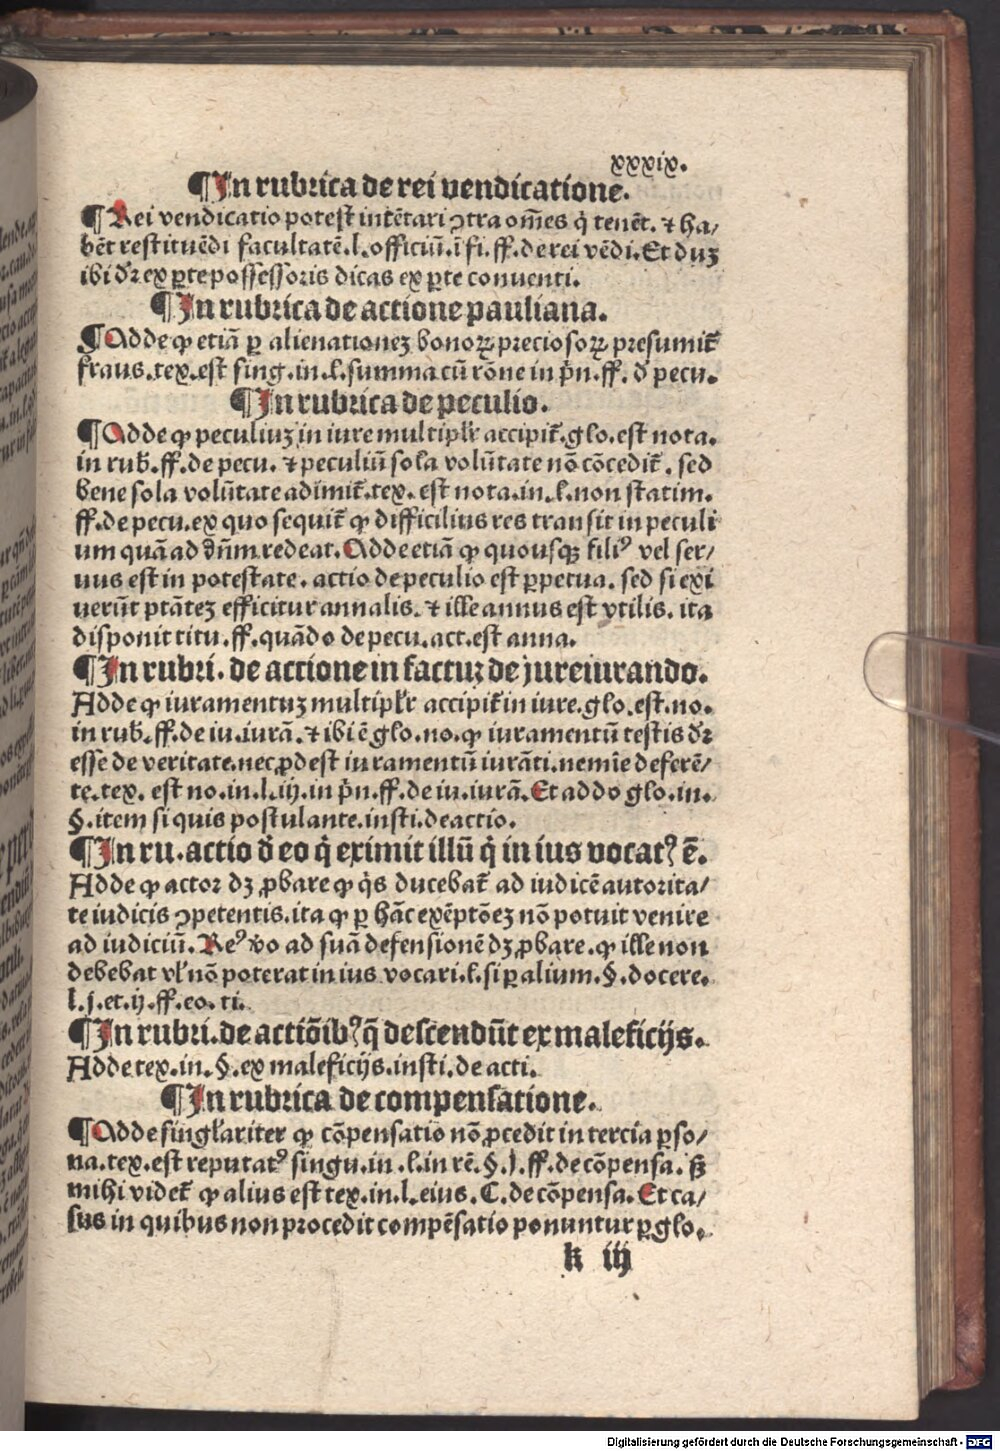 xxxix.
¶In rubrica de rei vendicatione.
¶Rei vendicatio potest intētari ꝯtra om̄es q̇ tenēt. ⁊ ha/
bēt restituēdi facultatē.l.officiū.ī fi.ff.de rei vēdi.Et duꝫ
ibi dr̄ ex ꝑte possessoris dicas ex ꝑte conuenti.
¶In rubrica de actione pauliana.
¶Adde ꝙ etiā ꝑ alienationeꝫ bonoꝝ preciosoꝝ presumit̄
fraus.tex.est sing.in.l.summa cū rōne in pn̄.ff. ḋ pecu.
¶In rubrica de peculio.
¶Adde ꝙ peculiuꝫ in iure multipl̓r accipit̄.glo.est nota.
in rub̓.ff.de pecu. ⁊ peculiū sola volūtate nō cōcedit̄. sed
bene sola volūtate adimit̄.tex. est nota.in.l.non statim.
ff.de pecu.ex quo sequit̄ ꝙ difficilius res transit in peculi
um quā ad dn̄m redeat. Adde etiā ꝙ quousqꝫ filiꝰ vel ser/
uus est in potestate. actio de peculio est ꝑpetua. sed si exi
uerūt ptāteꝫ efficitur annalis. ⁊ ille annus est vtilis. ita
disponit titu.ff.quādo de pecu.act.est anna.
¶In rubri. de actione in factuꝫ de jureiurando.
Adde ꝙ iuramentuꝫ multipl̓r accipit̄ in iure.glo.est.no.
in rub̓.ff.de iu.iurā.⁊ ibi ē glo.no.ꝙ iuramentū testis dr̄
esse de veritate.nec ꝓdest iuramentū iurāti.nemīe deferē/
te.tex. est no.in.l.iij.in pn̄.ff.de iu.iurā.Et addo glo.in.
§.item si quis postulante.insti.de actio.
¶In ru.actio ḋ eo q̇ eximit illū q̇ in ius vocatꝰ ē.
Adde ꝙ actor dꝫ ꝓbare ꝙ q̇s ducebat̄ ad iudicē autorita/
te iudicis ꝯpetentis.ita ꝙ ꝑ hāc exēptōeꝫ nō potuit venire
ad iudiciū. Reꝰ v̇o ad suā defensionē dꝫ ꝓbare. ꝙ ille non
debebat vl̓ nō poterat in ius vocari.l.si ꝑ alium.§.docere.
l.j.et.ij.ff.eo.ti.
¶In rubri.de actiōibꝰ q̄ descendūt ex maleficijs.
Adde tex.in.§.ex maleficijs.insti.de acti.
¶In rubrica de compensatione.
¶Adde singl̓ariter ꝙ cōpensatio nō ꝓcedit in tercia ꝑso/
na.tex.est reputatꝰ singu.in.l.in rē.§.j.ff.de cōpensa.ſꝫ
mihi videt̄ ꝙ alius est tex.in.l.eius. C.de cōpensa.Et ca/
sus in quibus non procedit compēsatio ponuntur ꝑ glo.
k iij
Digitalisierung gefördert durch die Deutsche Forschungsgemeinschaft - DFG